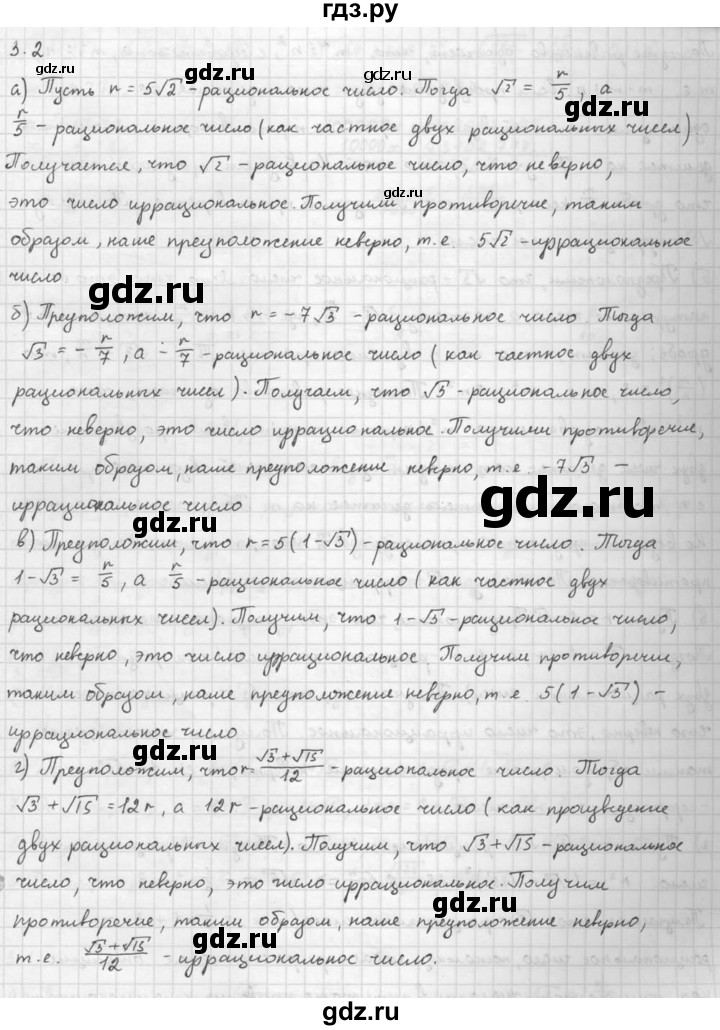 гдз.ру
3.2
а) Пусть r = 5√2 - рациональное число. Тогда √2 = r/5, а
r/5 - рациональное число (как частное двух рациональных чисел)
Получается, что √2 - рациональное число, что неверно,
это число иррациональное. Получили противоречие, таким
образом, наше преуположение неверно, т.е. 5√2 - иррациональное
число
б) Преуположим, что r = -7√3 - рациональное число. Тогда
√3 = - r/7, а - r/7 - рациональное число (как частное двух
рациональных чисел). Получаем, что √3 - рациональное число,
что неверно, это число иррациональное. Получили противоречие,
таким образом, наше преуположение неверно, т.е. -7√3 -
иррациональное число
в) Преуположим, что r = 5(1-√3) - рациональное число. Тогда
1-√3 = r/5, а r/5 - рациональное число (как частное двух
рациональных чисел). Получим, что 1-√3 - рациональное число,
что неверно, это число иррациональное. Получим противоречие,
таким образом, наше преуположение неверно, т.е. 5(1-√3) -
иррациональное число
г) Преуположим, что r = (√3+√15)/12 - рациональное число. Тогда
√3+√15 = 12r, а 12r - рациональное число (как произведение
двух рациональных чисел). Получим, что √3+√15 - рациональное
число, что неверно, это число иррациональное. Получим
противоречие, таким образом, наше преуположение неверно,
т.е. (√3+√15)/12 - иррациональное число.
gdz.ru